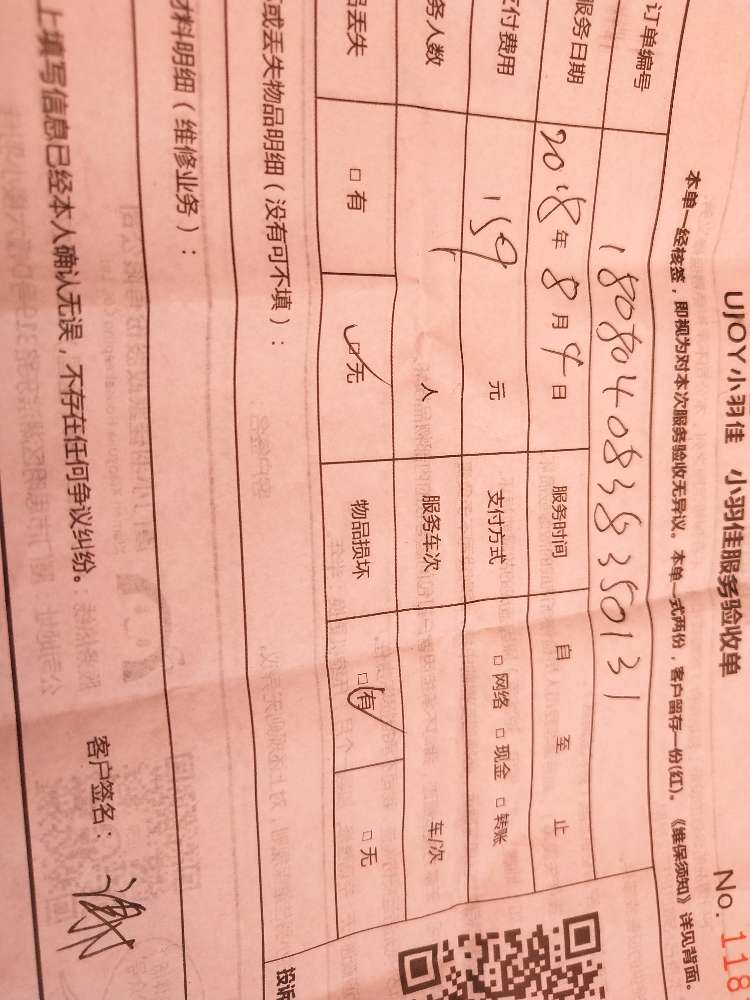 UJOY小羽佳 小羽佳服务验收单
No. 118
本单一经核签，即视为对本次服务验收无异议。本单一式两份，客户留存一份(红)。《维保须知》详见背面。
订单编号 18080408383350131
服务日期 2018年8月4日 服务时间 自 至 止
支付费用 159 元 支付方式 □网络 □现金 □转账
务人数 1 人 服务车次 车/次
丢失 □有 □无 物品损坏 □有 □无
或丢失物品明细（没有可不填）：
投诉
材料明细（维修业务）：
上填写信息已经本人确认无误，不存在任何争议纠纷。
客户签名：谢